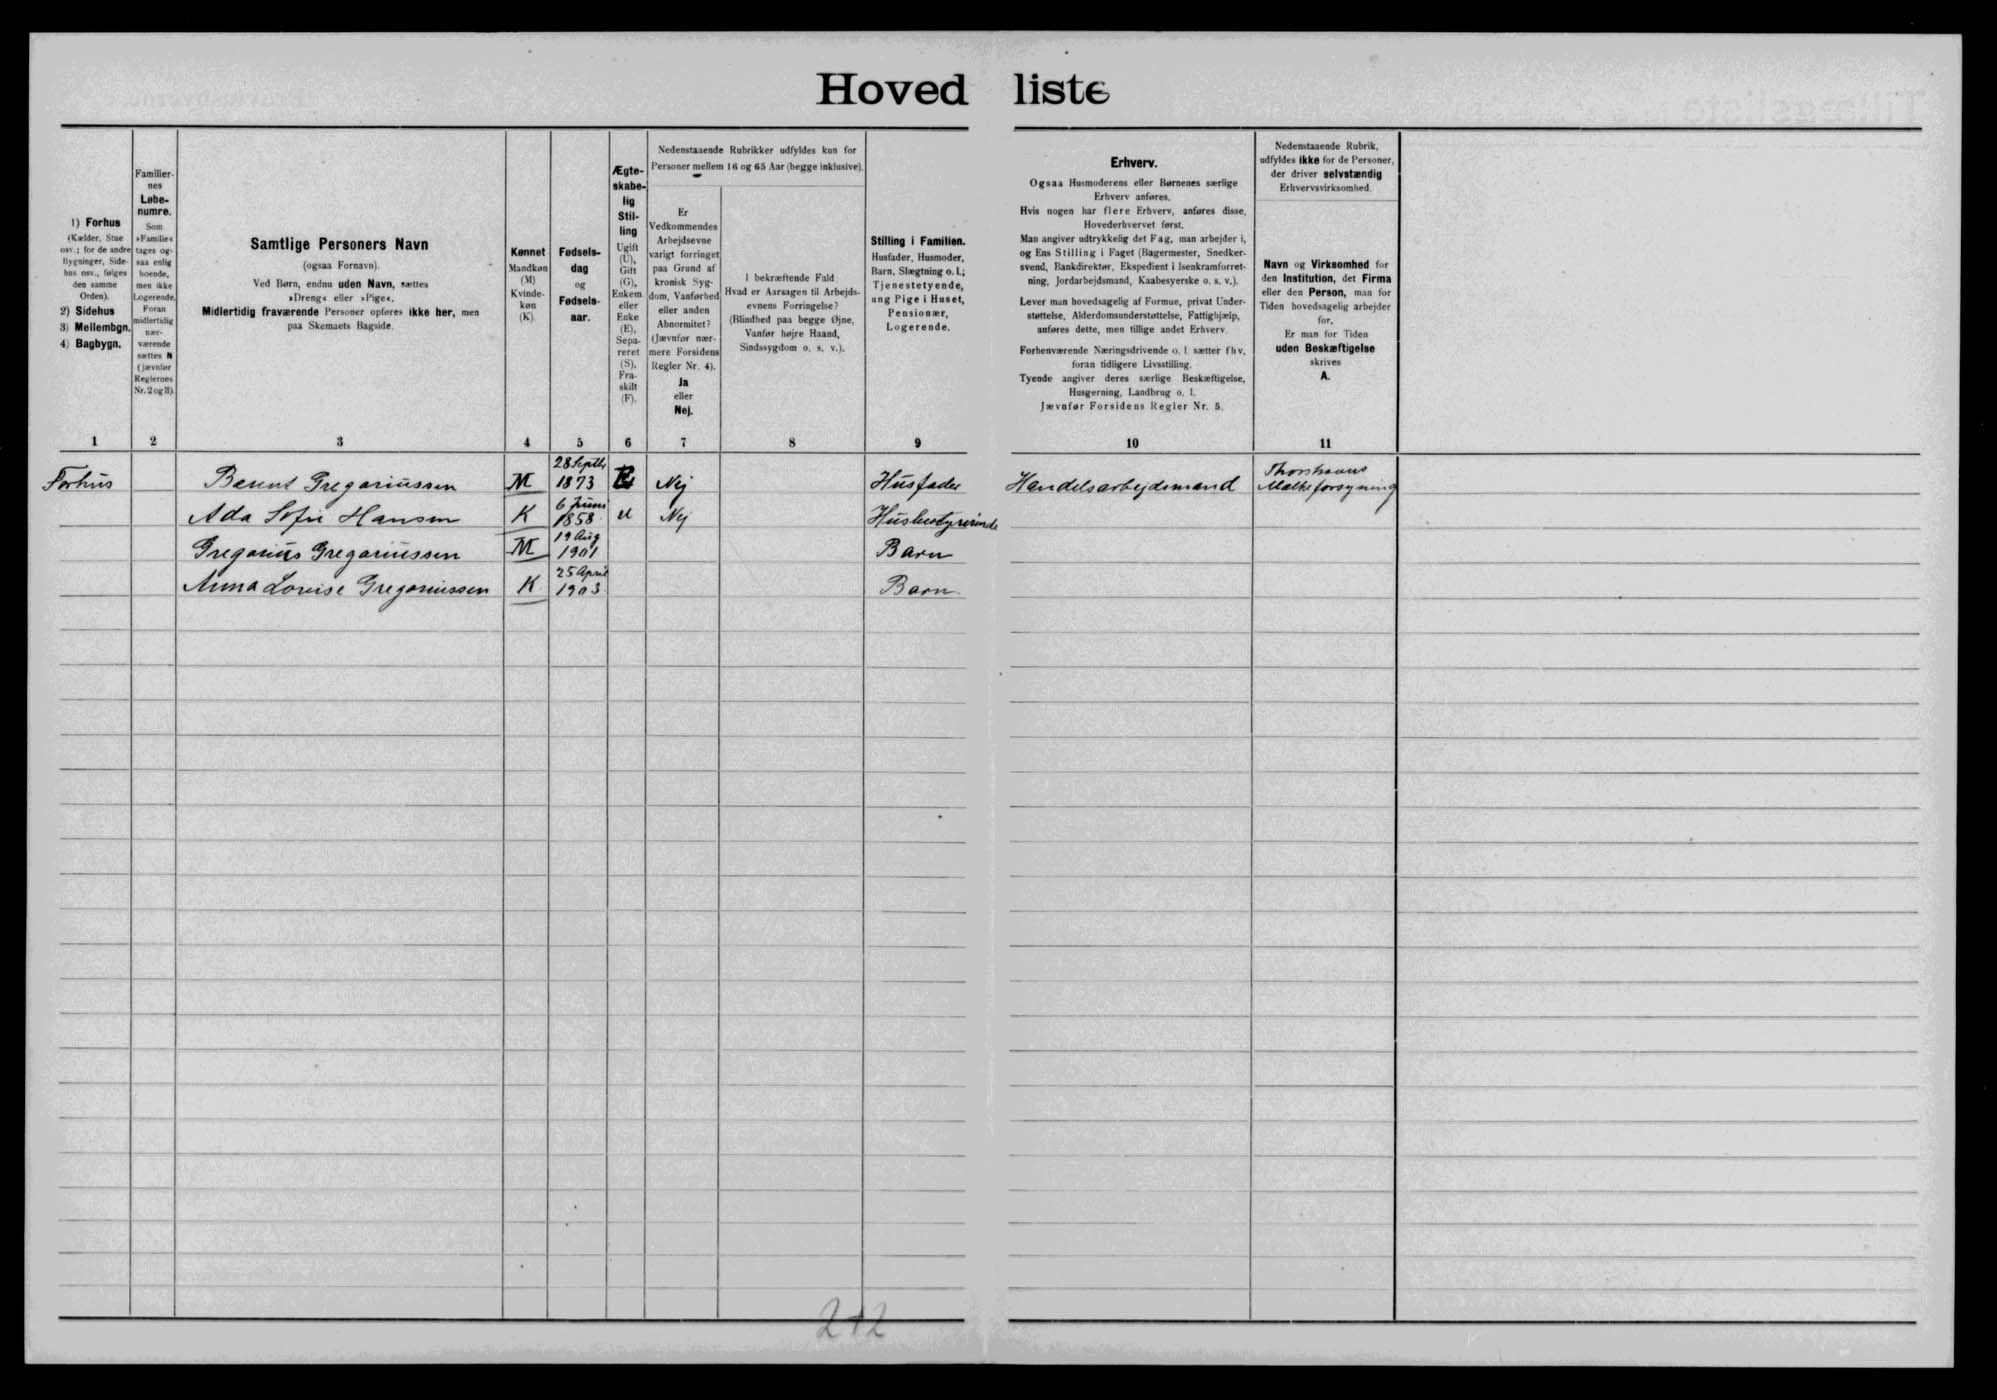 Hovedliste
1) Forhus
(Kælder, Stue
osv.; for de andre
Bygninger, Side-
hus osv., følges
den samme
Orden).
2) Sidehus
3) Mellembgn.
4) Bagbygn.
Familier-
nes
Løbe-
numre.
Som
»Familie«
tages og-
saa enlig
boende,
men ikke
Logerende.
Foran
midlertidig
nær-
værende
sættes N
(jævnfør
Reglernes
Nr. 2 og 3)
Samtlige Personers Navn
(ogsaa Fornavn).
Ved Børn, endnu uden Navn, sættes
»Dreng« eller »Pige«.
Midlertidig fraværende Personer opføres ikke her, men
paa Skemaets Bagside.
Kønnet
Mandkøn
(M)
Kvinde-
køn
(K).
Fødsels-
dag
og
Fødsels-
aar.
Ægte-
skabe-
lig
Stil-
ling
Ugift
(U),
Gift
(G),
Enkem.
eller
Enke
(E),
Sepa-
reret
(S),
Fra-
skilt
(F).
Nedenstaaende Rubrikker udfyldes kun for
Personer mellem 16 og 65 Aar (begge inklusive).
Er
Vedkommendes
Arbejdsevne
varigt forringet
paa Grund af
kronisk Syg-
dom, Vanførhed
eller anden
Abnormitet?
(Jævnfør nær-
mere Forsidens
Regler Nr. 4).
Ja
eller
Nej.
I bekræftende Fald
Hvad er Aarsagen til Arbejds-
evnens Forringelse?
(Blindhed paa begge Øjne,
Vanfør højre Haand,
Sindssygdom o. s. v.).
Stilling i Familien.
Husfader, Husmoder,
Barn, Slægtning o. l.;
Tjenestetyende,
ung Pige i Huset,
Pensionær,
Logerende.
Erhverv.
Ogsaa Husmoderens eller Børnenes særlige
Erhverv anføres.
Hvis nogen har flere Erhverv, anføres disse,
Hovederhvervet først.
Man angiver udtrykkelig det Fag, man arbejder i,
og Ens Stilling i Faget (Bagermester, Snedker-
svend, Bankdirektør, Ekspedient i Isenkramforret-
ning, Jordarbejdsmand, Kaabesyerske o. s. v.).
Lever man hovedsagelig af Formue, privat Under-
støttelse, Alderdomsunderstøttelse, Fattighjælp,
anføres dette, men tillige andet Erhverv.
Forhenværende Næringsdrivende o. l. sætter fhv.
foran tidligere Livsstilling.
Tyende angiver deres særlige Beskæftigelse,
Husgerning, Landbrug o. l.
Jævnfør Forsidens Regler Nr. 5.
Nedenstaaende Rubrik,
udfyldes ikke for de Personer,
der driver selvstændig
Erhvervsvirksomhed.
Navn og Virksomhed for
den Institution, det Firma
eller den Person, man for
Tiden hovedsagelig arbejder
for.
Er man for Tiden
uden Beskæftigelse
skrives
A.
1 2 3 4 5 6 7 8 9 10 11
Forhus Berent Gregariussen M 28 Septbr 1873 Nej Husfader Handelsarbejdsmand Thorshavns Mælkeforsyning
Ada Sofie Hansen K 6 Juni 1858 U Nej Husbestyrerinde
Gregarius Gregariussen M 19 Aug 1901 Barn
Anna Lovise Gregariussen K 25 April 1903 Barn
212